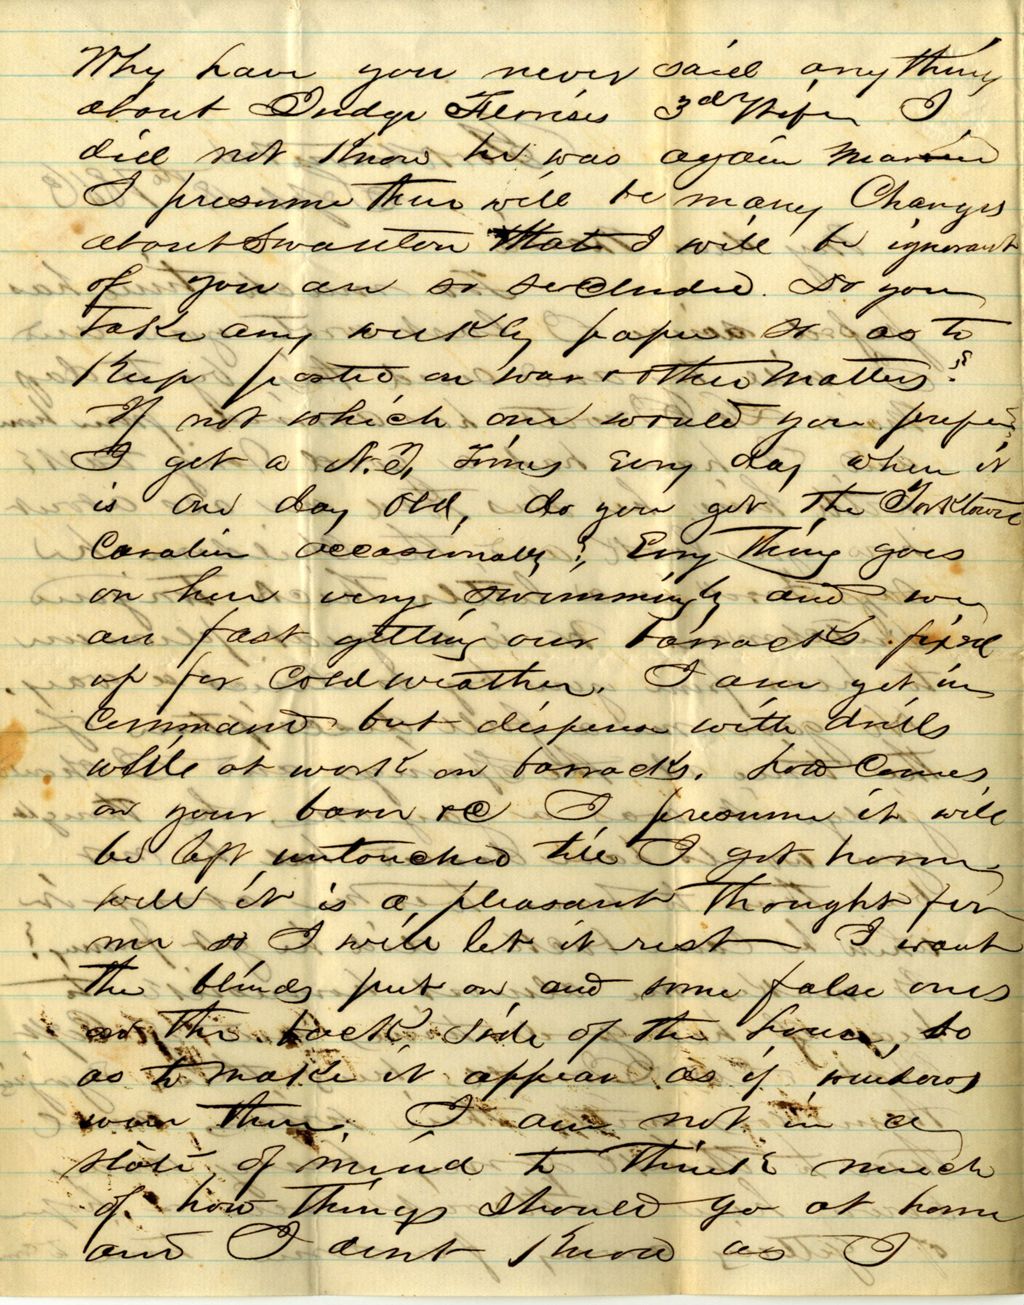 Why have you never said anything
about Judge 3d Wife I
did not know he was again married
I presume there will be many Changes
about Swanton that I will be ignorant
of you are so secluded. Do you
take any weekly paper so as to
keep posted on war & other matters?
If not which one would you prefer?
I get a N.Y. Times Every day when it
is one day old, do you get the Yorktown
Cavalier occasionally? Every thing goes
on here very swimmingly and we
are fast getting our barracks fixed
up for cold weather. I am yet in
command but dispense with drills
while at work on barracks. how comes
on your barn &c I presume it will
be left untouched till I get home
well it is a pleasant thought for
me so I will let it rest I want
the blinds put on and some false ones
on the back side of the house, so
as to make it appear as if windows
were there. I am not in a
state of mind to think much
of how things should go at home
and I dont know as I